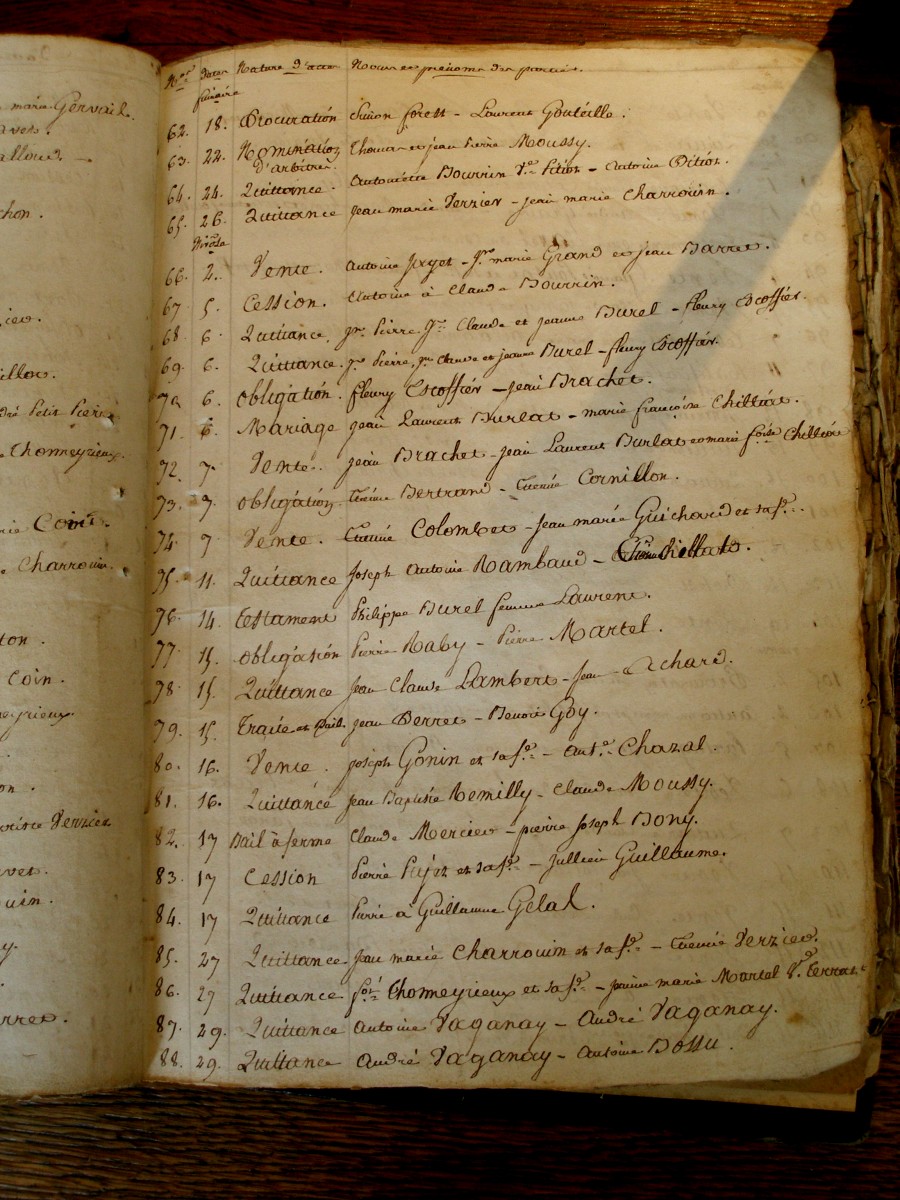 marie Gervail.
chon.
Petit Pierre
Thomeyrieux.
Charrouin.
Coin.
Verzier
Nos Dates Nature d'actes Noms et prénoms des parties.
frimaire
62. 18. Procuration Simon forest - Laurent Gouteille.
63. 22. Nomination Thomas et jean Pierre Moussy.
d'arbitre.
64. 24. Quittance. Antoinette Bourrin Ve. Pitiot - Antoine Pitiot.
65. 26. Quittance jean marie Verzier - jean marie Charrouin.
Nivose
66. 2. Vente. Antoine - marie Grand et jean Barret.
67. 5. Cession. Antoine à Claude Bourrin.
68. 6. Quittance. Pierre, Claude et jeanne Burel - fleury Escoffier.
69. 6. Quittance. Pierre, Claude et jeanne Burel - fleury Escoffier.
70. 6. Obligation. fleury Escoffier - jean Brachet.
71. 6. Mariage jean Laurent Burlat - marie françoise Chillat.
72. 7. Vente. jean Brachet - jean Laurent Burlat et marie foise Chillat
73. 7. Obligation. Etienne Bertrand - Etienne Cornillon.
74. 7. Vente. Etienne Colombet - jean marie Guichard et sa fe.
75. 11. Quittance joseph Antoine Rambaud -
76. 14. Testament Philippe Burel femme Laurent.
77. 15. Obligation Pierre Raby - Pierre Martel.
78. 15. Quittance jean Claude Lambert - jean Richard.
79. 15. Traité et Bail. jean Berret - Benoit Goy.
80. 16. Vente. joseph Gonin et sa fe. - ante. Chazal.
81. 16. Quittance jean Baptiste Remilly - Claude Moussy.
82. 17 Bail à ferme Claude Mercier - pierre joseph Bony.
83. 17 Cession Pierre et sa fe. - jullien Guillaume.
84. 17 Quittance Pierre à Guillaume Gelas.
85. 27 Quittance. jean marie Charrouin et sa fe. - Etienne Verzier.
86. 27 Quittance Thomeyrieux et sa fe. - jeanne marie Martel Ve.
87. 29. Quittance Antoine Vaganay - André Vaganay.
88. 29. Quittance André Vaganay - Antoine Bossu.